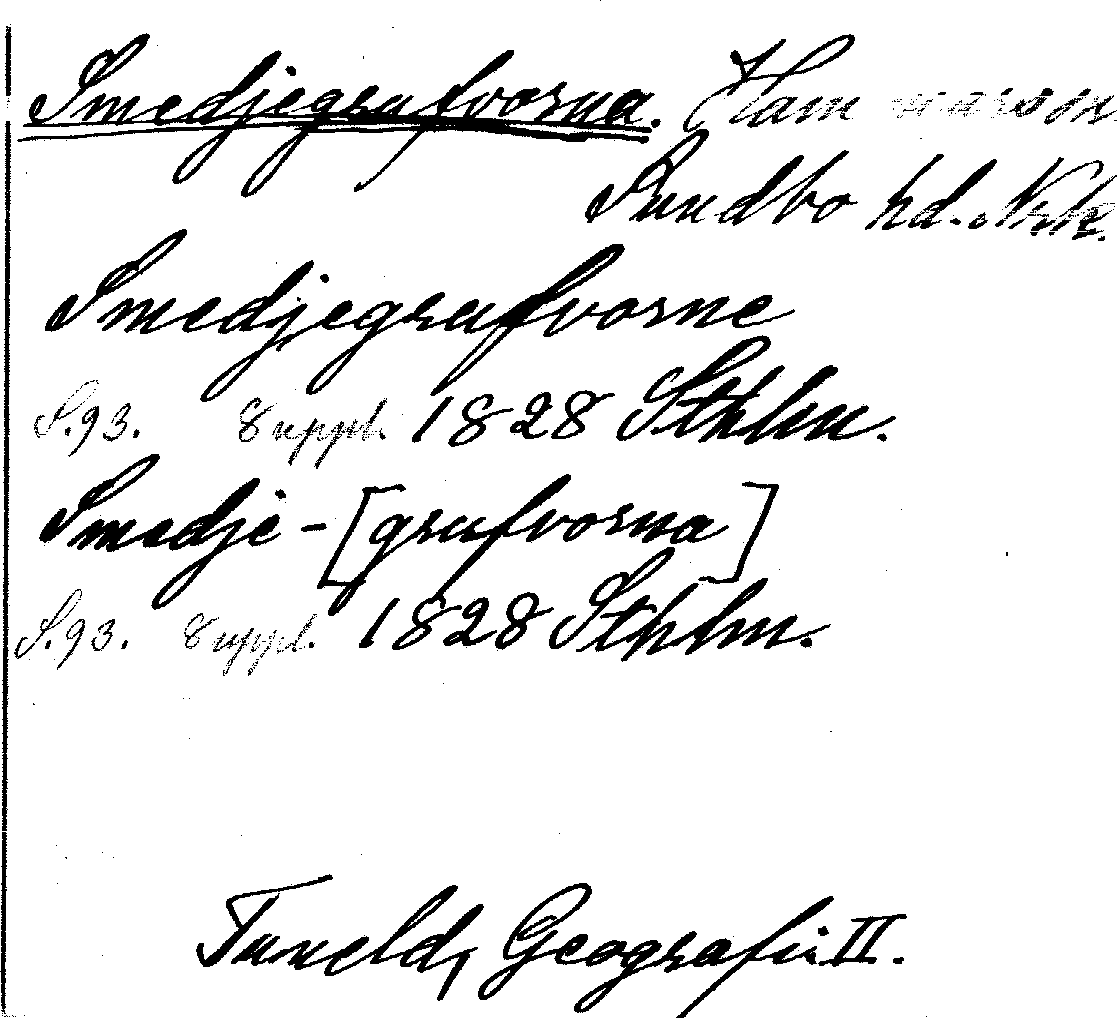 Smedjegrafvorna. Ham
Sundbo hd. Nrk.
Smedjegrafvorne
S. 93. Suppl. 1828 Sthlm.
Smedje-[grafvorna]
S. 93. Suppl. 1828 Sthlm.
Tuneld, Geografi II.